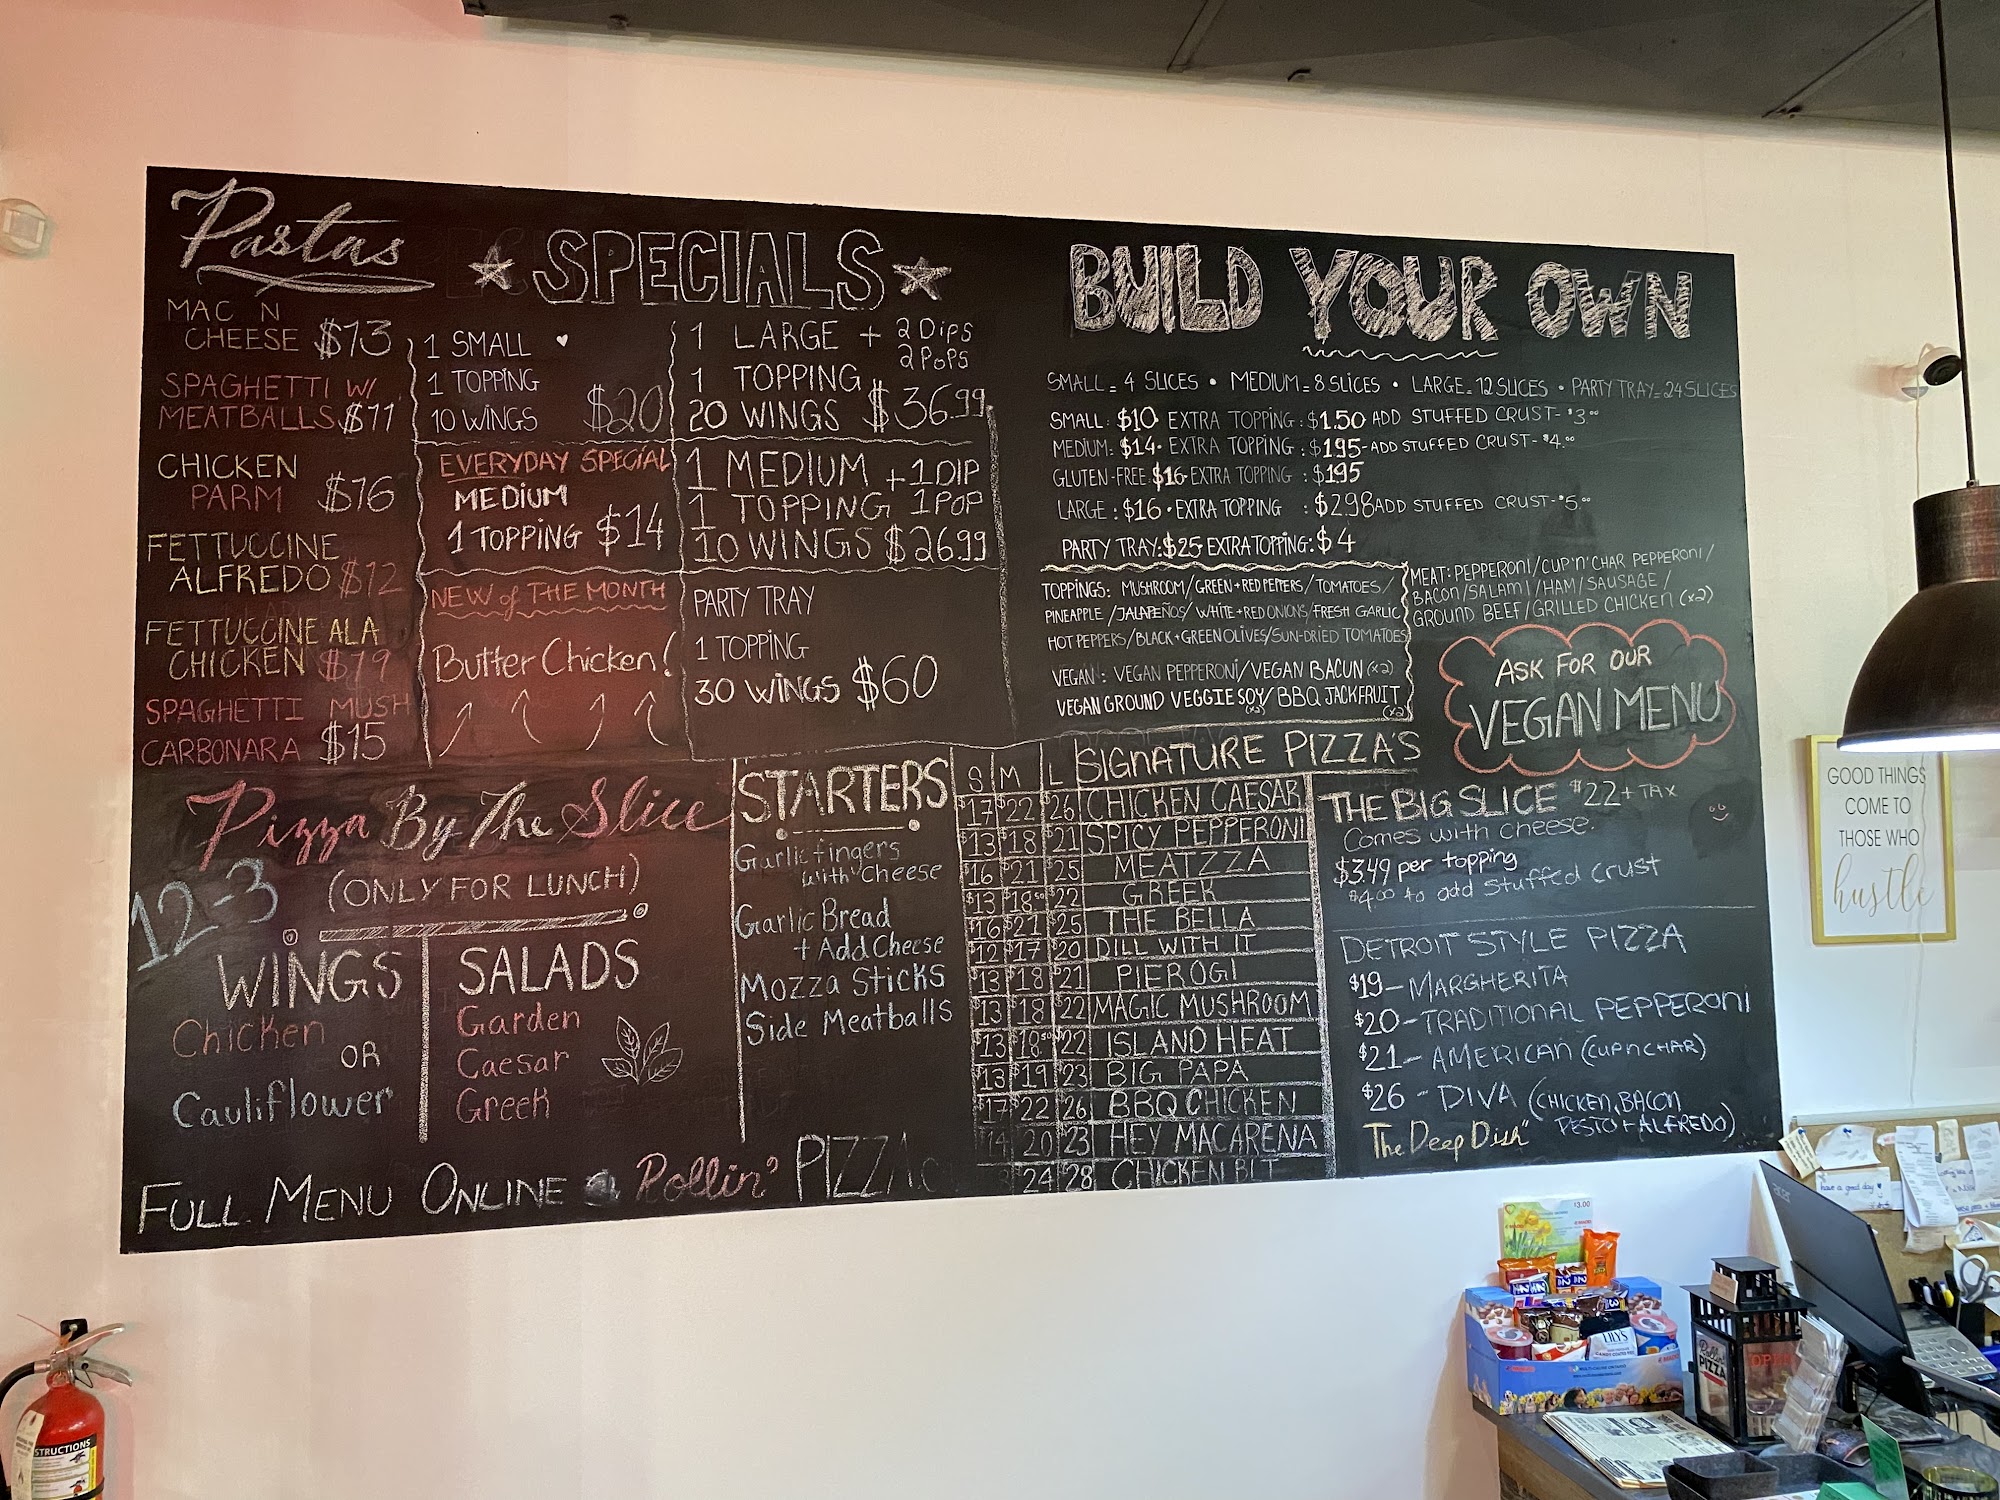 Pastas
MAC N
CHEESE $13
SPAGHETTI W/
MEATBALLS $11
CHICKEN
PARM $16
FETTUCCINE
ALFREDO $12
FETTUCCINE ALA
CHICKEN $19
SPAGHETTI MUSH
CARBONARA $15
SPECIALS
1 SMALL
1 TOPPING
10 WINGS $20
1 LARGE + 2 Dips
2 POPS
1 TOPPING
20 WINGS $36.99
EVERYDAY SPECIAL
MEDIUM
1 TOPPING $14
1 MEDIUM + 1 DIP
1 TOPPING 1 POP
10 WINGS $26.99
NEW of THE MONTH
Butter Chicken!
PARTY TRAY
1 TOPPING
30 WINGS $60
BUILD YOUR OWN
SMALL = 4 SLICES • MEDIUM = 8 SLICES • LARGE = 12 SLICES • PARTY TRAY = 24 SLICES
SMALL: $10 EXTRA TOPPING: $1.50 ADD STUFFED CRUST - $3.00
MEDIUM: $14 - EXTRA TOPPING: $195 - ADD STUFFED CRUST - $4.00
GLUTEN-FREE $16 - EXTRA TOPPING: $195
LARGE: $16 • EXTRA TOPPING : $2.98 ADD STUFFED CRUST - $5.00
PARTY TRAY: $25 EXTRA TOPPING: $4
TOPPINGS: MUSHROOM/GREEN+RED PEPPERS/TOMATOES/
PINEAPPLE/JALAPEÑOS/WHITE+RED ONIONS/FRESH GARLIC
HOT PEPPERS/BLACK+GREEN OLIVES/SUN-DRIED TOMATOES
VEGAN: VEGAN PEPPERONI/VEGAN BACUN (x2)
VEGAN GROUND VEGGIE SOY (x2)/BBQ JACKFRUIT (x2)
MEAT: PEPPERONI/CUP'N'CHAR PEPPERONI/
BACON/SALAMI/HAM/SAUSAGE/
GROUND BEEF/GRILLED CHICKEN (x2)
ASK FOR OUR
VEGAN MENU
Pizza By The Slice
12-3
(ONLY FOR LUNCH)
WINGS
Chicken
OR
Cauliflower
SALADS
Garden
Caesar
Greek
STARTERS
Garlic fingers
with cheese
Garlic Bread
+ Add Cheese
Mozza Sticks
Side Meatballs
S M L SIGNATURE PIZZA'S
$17 $22 $26 CHICKEN CAESAR
$13 $18 $21 SPICY PEPPERONI
$16 $21 $25 MEATZZA
$13 $18.50 $22 GREEK
$16 $21 $25 THE BELLA
$12 $17 $20 DILL WITH IT
$13 $18 $21 PIEROGI
$13 $18 $22 MAGIC MUSHROOM
$13 $18.50 $22 ISLAND HEAT
$13 $19 $23 BIG PAPA
$17 $22 $26 BBQ CHICKEN
14 20 $23 HEY MACARENA
24 $28 CHICKEN BLT
THE BIG SLICE $22 + TAX
Comes with cheese.
$3.49 per topping
$4.00 to add stuffed crust
DETROIT STYLE PIZZA
$19 - MARGHERITA
$20 - TRADITIONAL PEPPERONI
$21 - AMERICAN (CUP N CHAR)
$26 - DIVA (CHICKEN, BACON
PESTO + ALFREDO)
"The Deep Dish"
FULL MENU ONLINE @ Rollin' PIZZA
GOOD THINGS
COME TO
THOSE WHO
hustle
have a good day
acer
$3.00
LILY'S
Rollin'
PIZZA
OPEN
STRUCTIONS